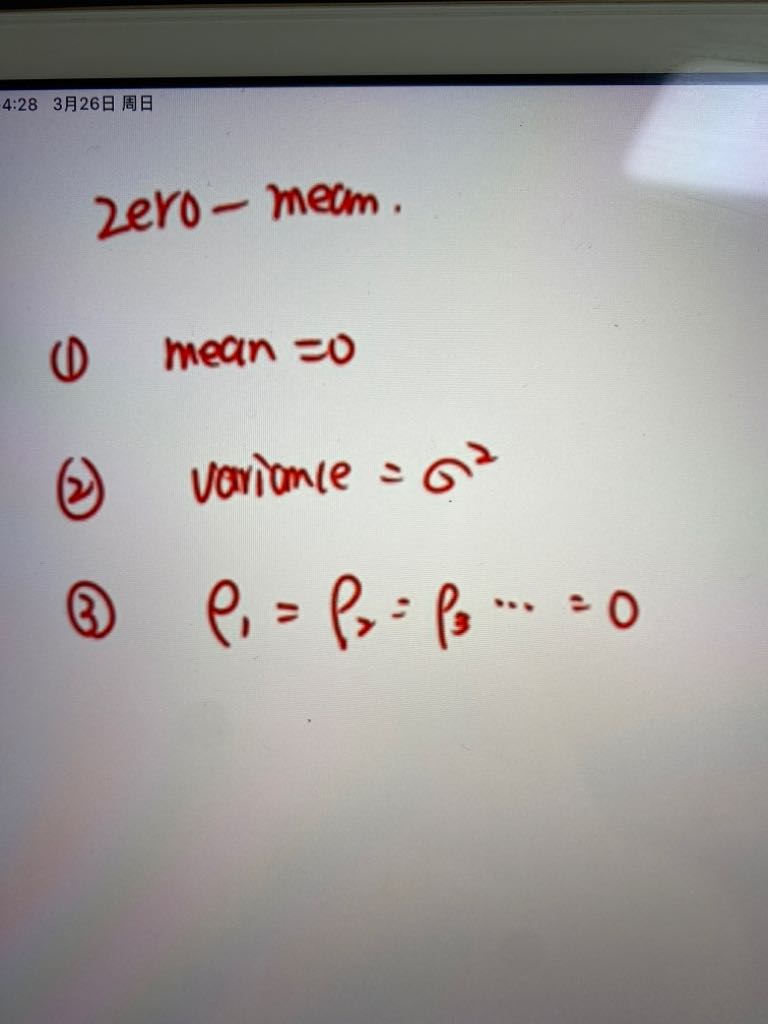 4:28 3月26日 周日
zero - mean.
① mean = 0
② variance = σ²
③ ρ₁ = ρ₂ = ρ₃ ... = 0